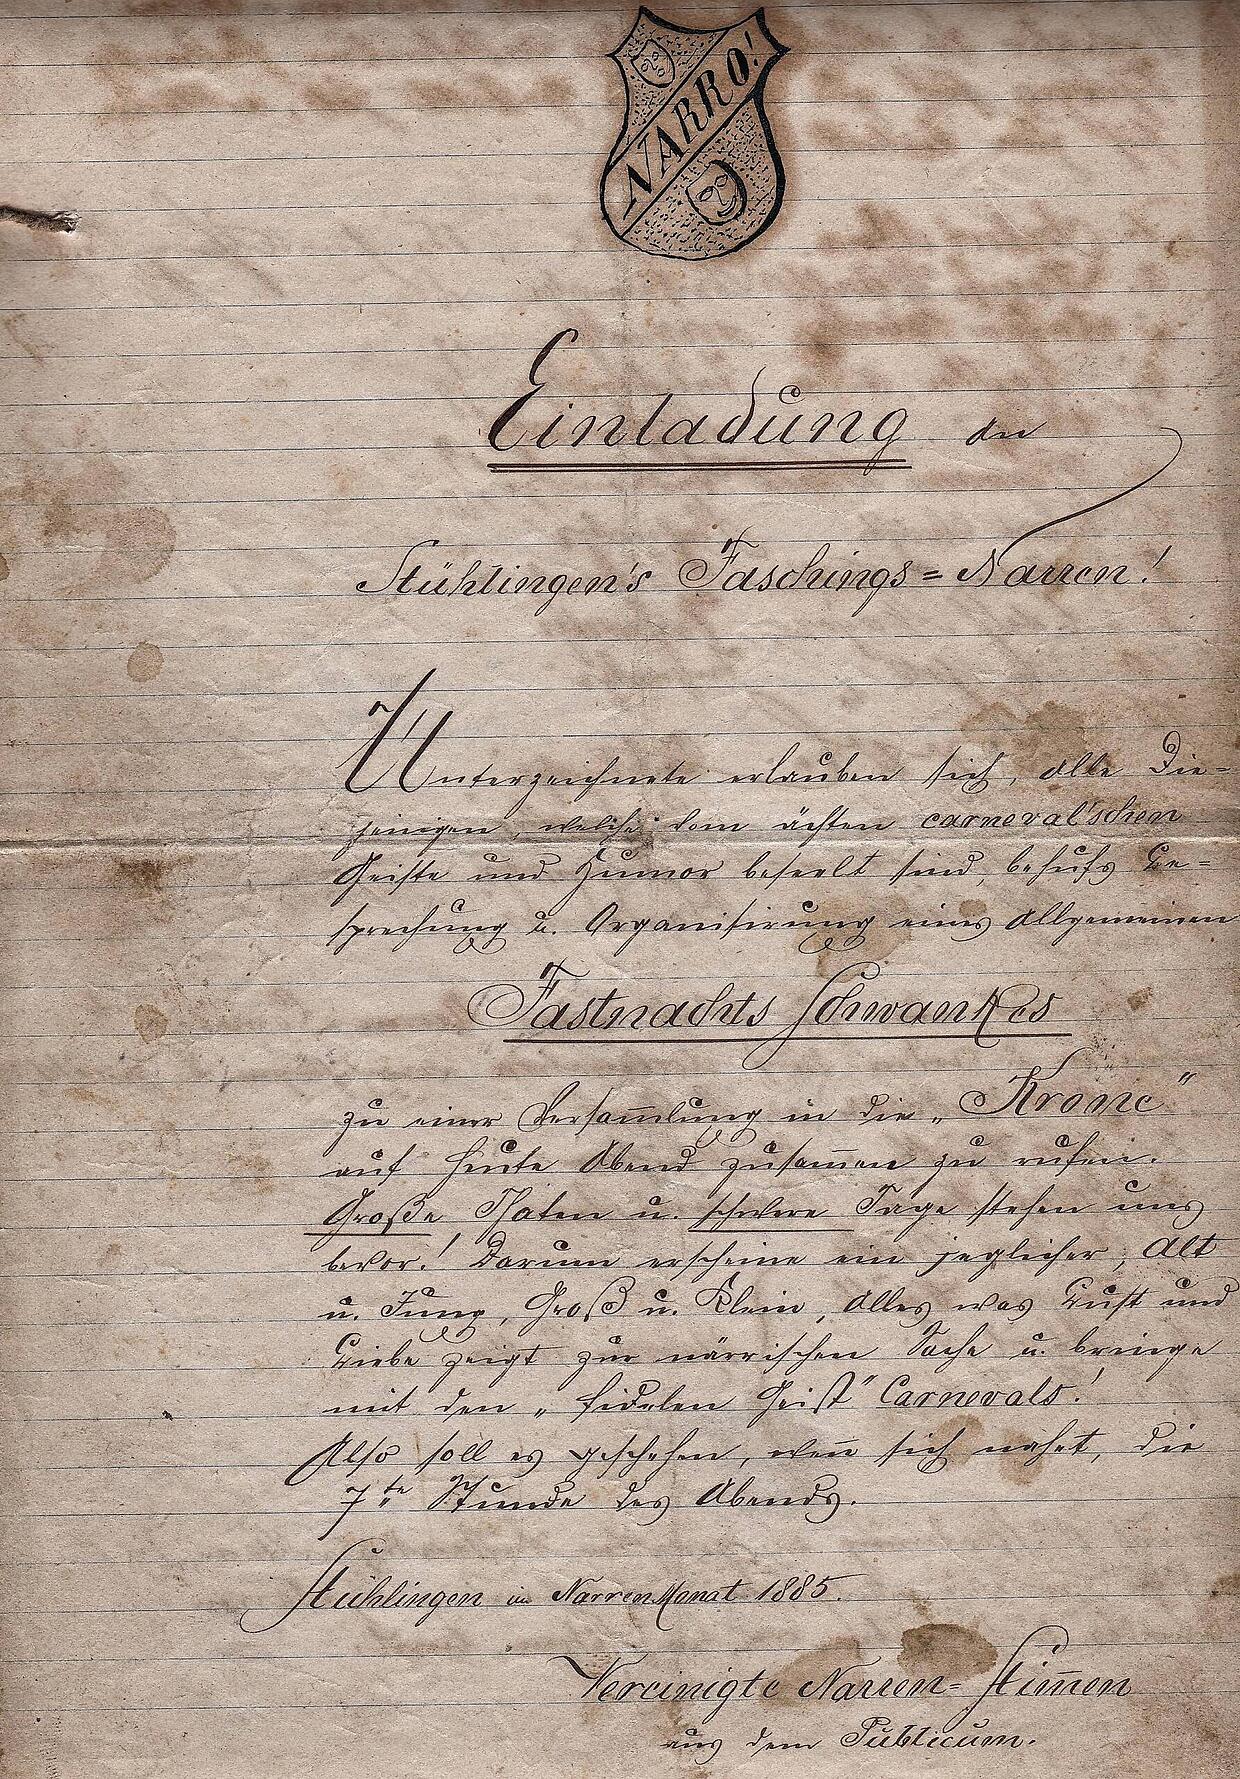 NARRO!
Einladung der
Stühlingen's Faschings=Narren!
Unterzeichnete erlauben sich, alle Die=
jenigen, welche vom ächten carneval'schen
Geiste und Humor beseelt sind, behufs Be=
sprechung u. Organisirung eines Allgemeinen
Fastnachts Schwankes
zu einer Versam̅lung in die „Krone“
auf heute Abend zusam̅en zu rufen.
Große Thaten u. schwere Tage stehen uns
bevor! Darum erscheine ein jeglicher, Alt
u. Jung, Groß u. Klein, Alles was Lust und
Liebe zeigt zur närrischen Sache u. bringe
mit den „fidelen Geist“ Carnevals!
Also soll es geschehen, wen̅ sich nahet, die
7te Stunde des Abends.
Stühlingen im NarrenMonat 1885.
Vereinigte Narren=Stim̅en
aus dem Publicum.